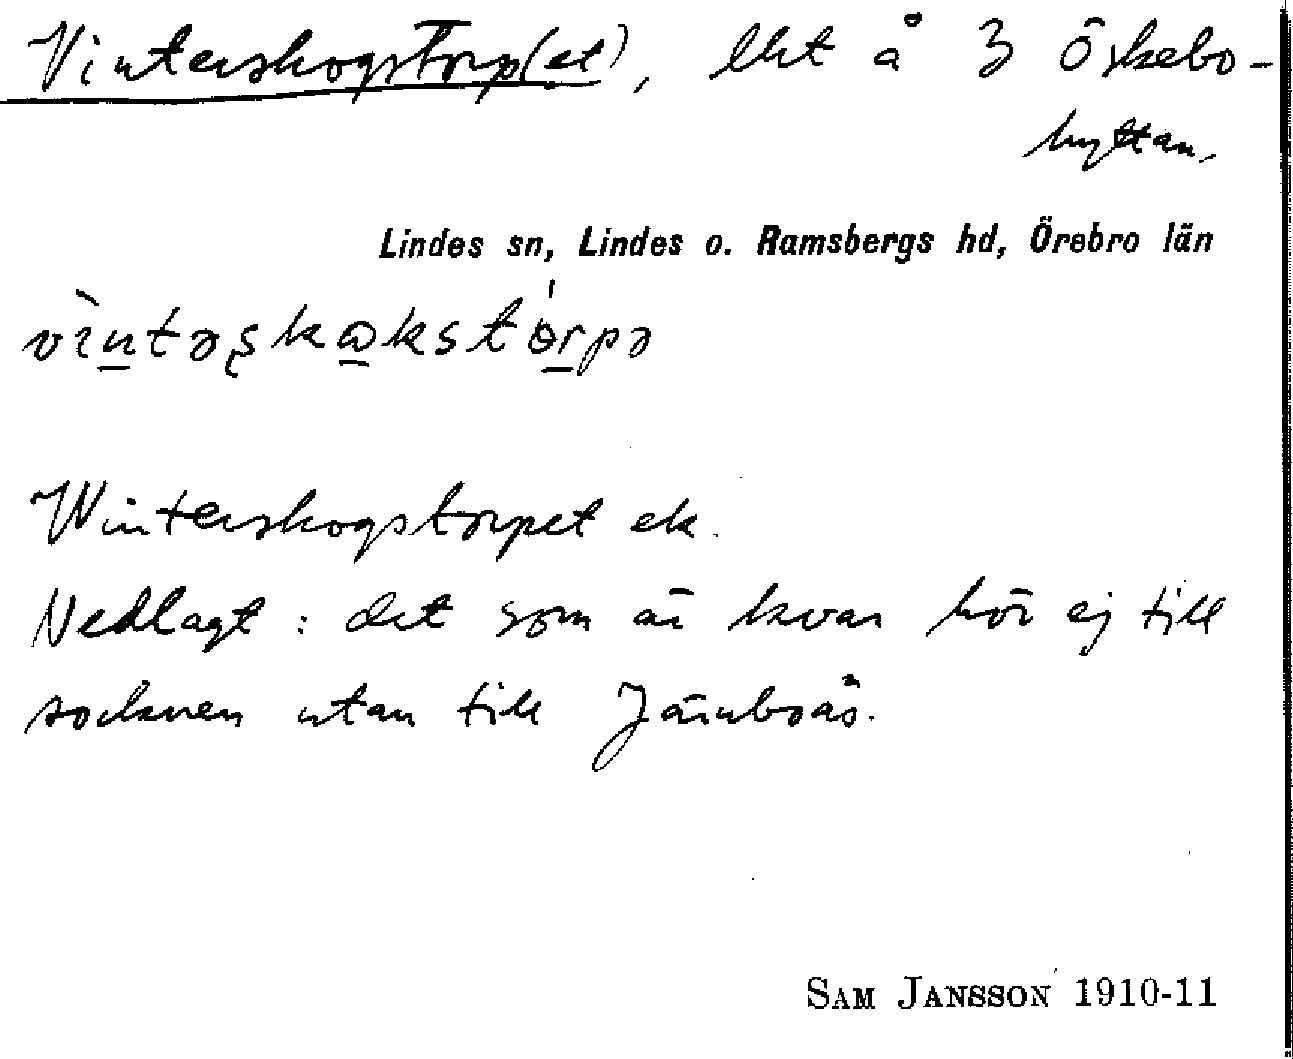 Vinterskogstorp(et), lht å 3 Öskebo-
hyttan,
Lindes sn, Lindes o. Ramsbergs hd, Örebro län
vìntəʂkɷkstȯ́rpə
Winterskogstorpet ek.
Nedlagt: det som är kvar hör ej till
socknen utan till Järnboås.
SAM JANSSON 1910-11